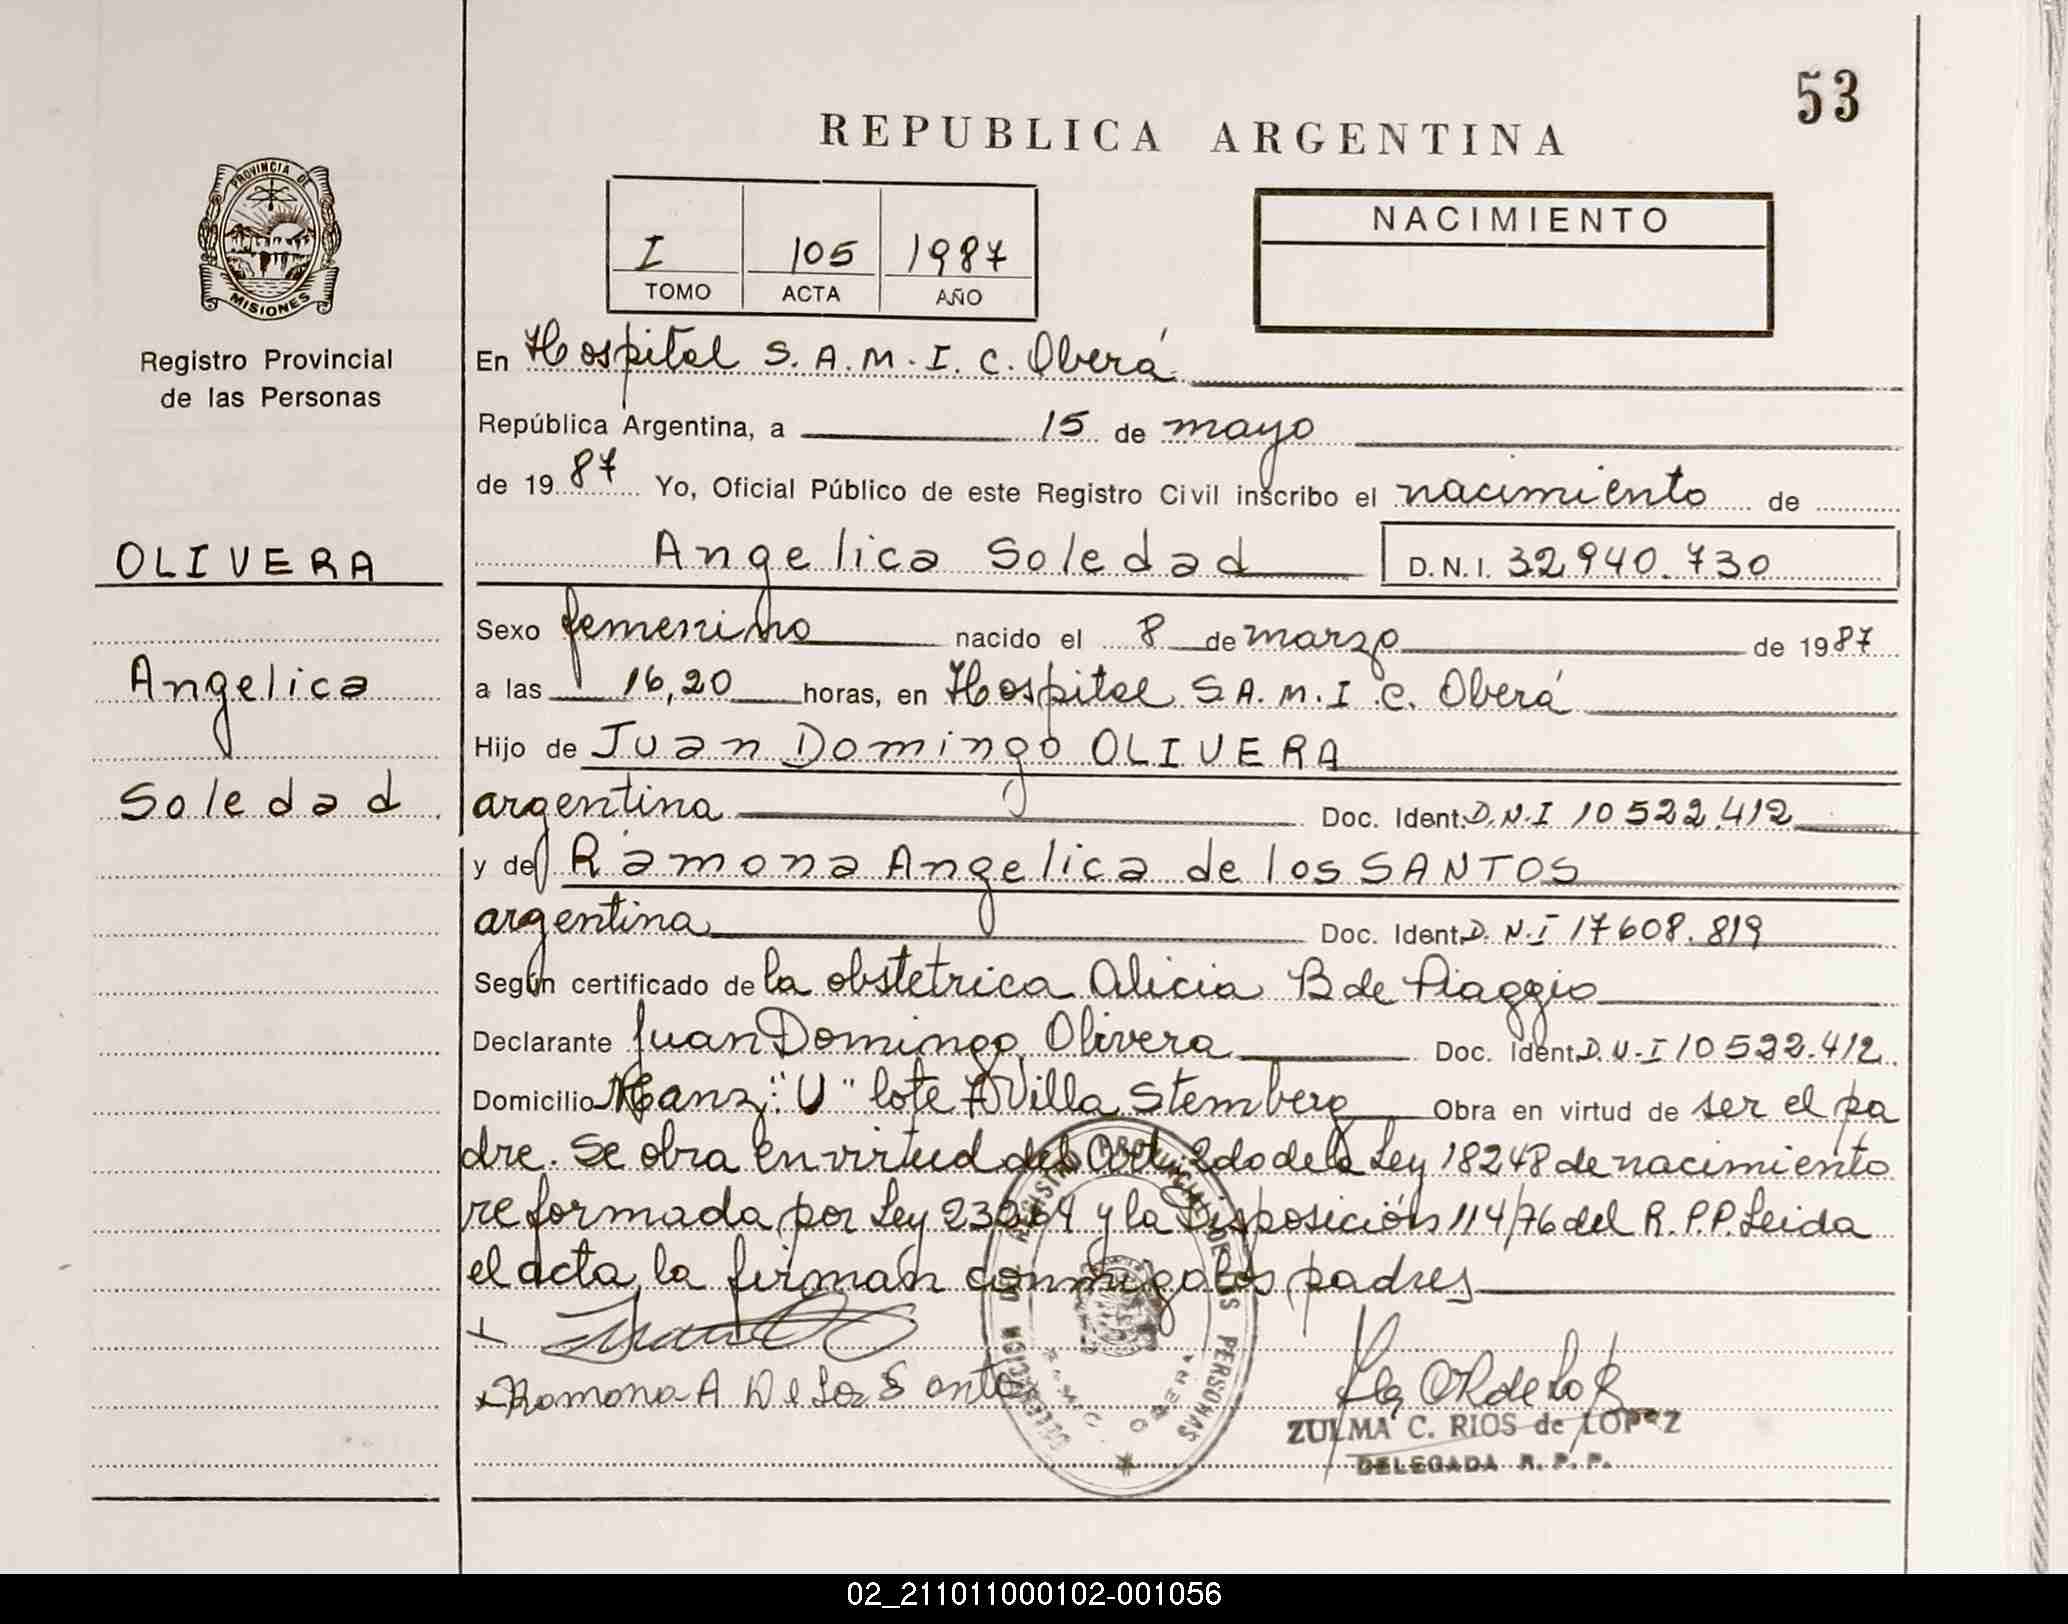 53
REPUBLICA ARGENTINA
PROVINCIA DE
MISIONES
Registro Provincial
de las Personas
I 105 1987
TOMO ACTA AÑO
NACIMIENTO
En Hospital S.A.M.I.C. Oberá
República Argentina, a 15 de mayo
de 1987 Yo, Oficial Público de este Registro Civil inscribo el nacimiento de
OLIVERA
Angelica Soledad D.N.I. 32940.730
Sexo femenino nacido el 8 de marzo de 1987
Angelica
a las 16,20 horas, en Hospital S.A.M.I.C. Oberá
Hijo de Juan Domingo OLIVERA
Soledad
argentina Doc. Ident. D.N.I 10522.412
y de Ramona Angelica de los SANTOS
argentina Doc. Ident. D.N.I 17608.819
Según certificado de la obstetrica Alicia B de Piaggio
Declarante Juan Domingo Olivera Doc. Ident. D.N.I 10522.412
Domicilio Manz: "U" lote 7 Villa Stemberg Obra en virtud de ser el pa
dre. Se obra en virtud del Art. 2do de la Ley 18248 de nacimiento
reformada por Ley 23264 y la Disposición 114/76 del R.P.P. Leida
el acta, la firman conmigo los padres
Ramona A De Los Santo
ZULMA C. RIOS de LOPEZ
DELEGADA R. P. P.
02_211011000102-001056